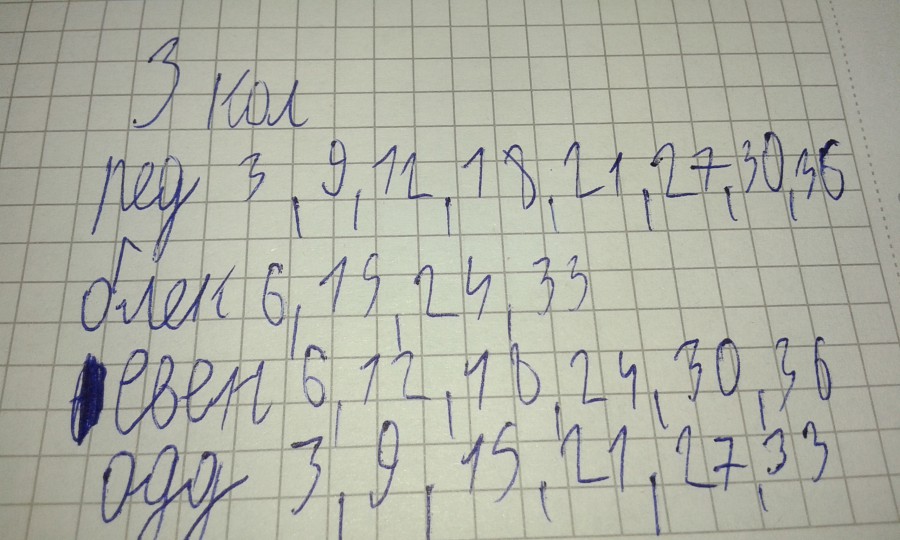 3 кол
ред 3, 9, 12, 18, 21, 27, 30, 36
блек 6, 15, 24, 33
евен 6, 12, 18, 24, 30, 36
одд 3, 9, 15, 21, 27, 33